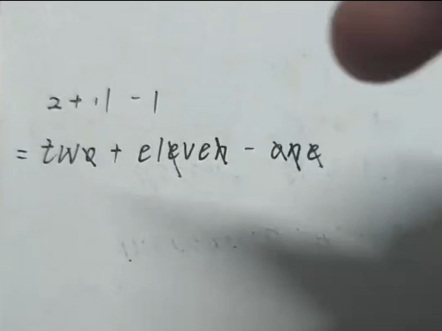 2 + 11 - 1
= two + eleven - one